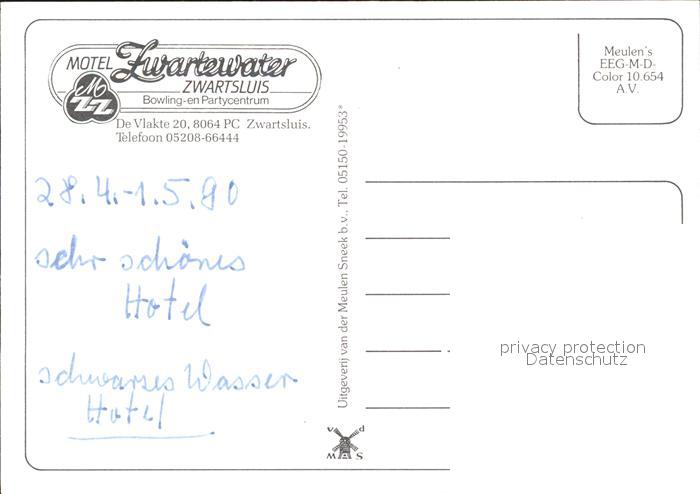 MOTEL Zwartewater
ZWARTSLUIS
Bowling-en Partycentrum
MZZ
De Vlakte 20, 8064 PC Zwartsluis.
Telefoon 05208-66444
Meulen's
EEG-M-D-
Color 10.654
A.V.
28.4.-1.5.90
sehr schönes
Hotel
schwarzes Wasser
Hotel
Uitgeverij van der Meulen Sneek b.v., Tel. 05150-19953*
v d
M S
privacy protection
Datenschutz